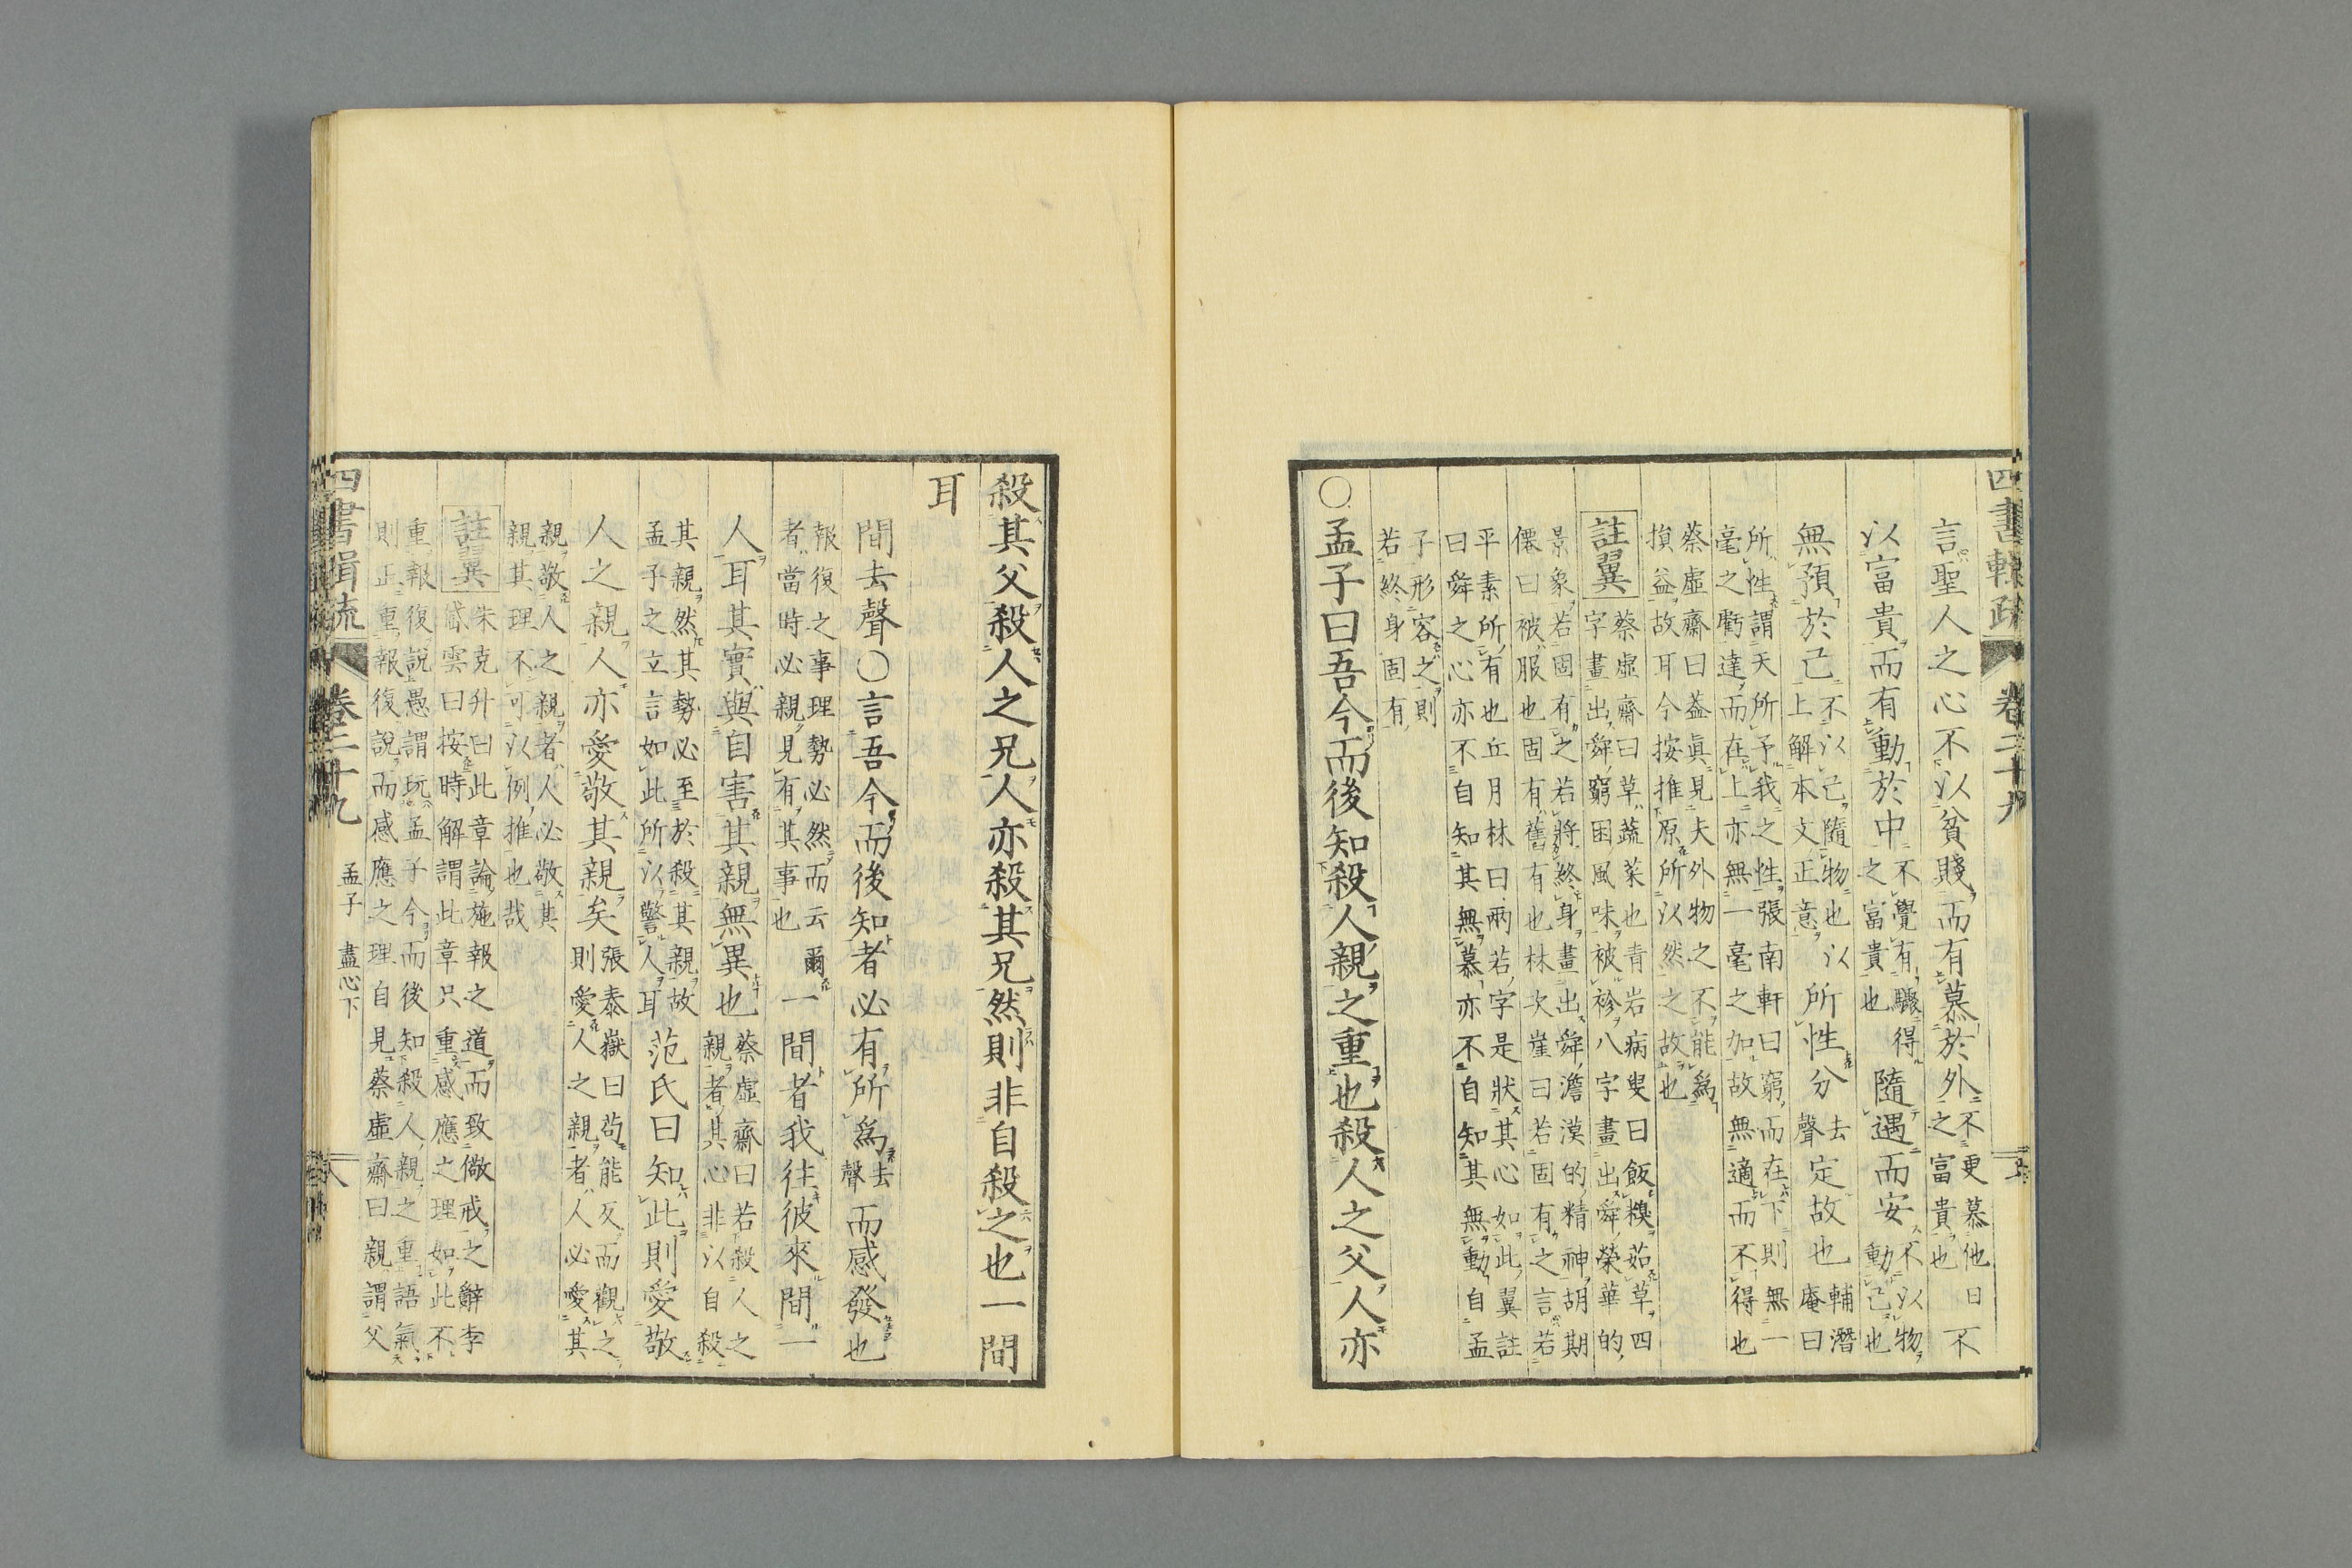 四書輯疏 卷二十九
言聖人之心不以貧賤而有慕於外不更慕他日不之富貴也
以富貴而有動於中不覺有驟得之富貴也隨遇而安不以物動己也
無預於己不以己隨物也以上解本文正意所性分去聲定故也輔潛庵曰
所性謂天所予我之性張南軒曰窮而在下則無一
毫之虧達而在上亦無一毫之加故無適而不得也
蔡虛齋曰蓋眞見夫外物之不能爲
損益故耳今按推原所以然之故也
註翼
蔡虛齋曰草蔬菜也青岩病叟曰飯糗茹草四
字畫出舜窮困風味被袗八字畫出舜榮華的
景象若固有之若將終身畫出舜澹漠的精神胡期
僊曰被服也固有舊有也林次崖曰若固有之言若
平素所有也丘月林曰兩若字是狀其心如此翼註
曰舜之心亦不自知其無慕亦不自知其無動自孟
子形容之則
若終身固有
○孟子曰吾今而後知殺人親之重也殺人之父人亦
殺其父殺人之兄人亦殺其兄然則非自殺之也一間
耳
間去聲○言吾今而後知者必有所爲去聲而感發也
報復之事理勢必然而云爾一間者我往彼來間一
者當時必親見有其事也
人耳其實與自害其親無異也蔡虛齋曰若殺人之親者其心非以自殺
其親然其勢必至於殺其親故
孟子之立言如此所以警人耳
范氏曰知此則愛敬
人之親人亦愛敬其親矣張泰嶽曰茍能反而觀之則愛人之親者人必愛其
親敬人之親者人必敬其
親其理不可以例推也哉
註翼
朱克升曰此章論施報之道而致儆戒之辭李
岱雲曰按時解謂此章只重感應之理如此不
重報復說愚謂玩孟子今而後知殺人親之重語氣
則正重報復說而感應之理自見蔡虛齋曰親謂父
四書輯疏 卷二十九 孟子 盡心下 八